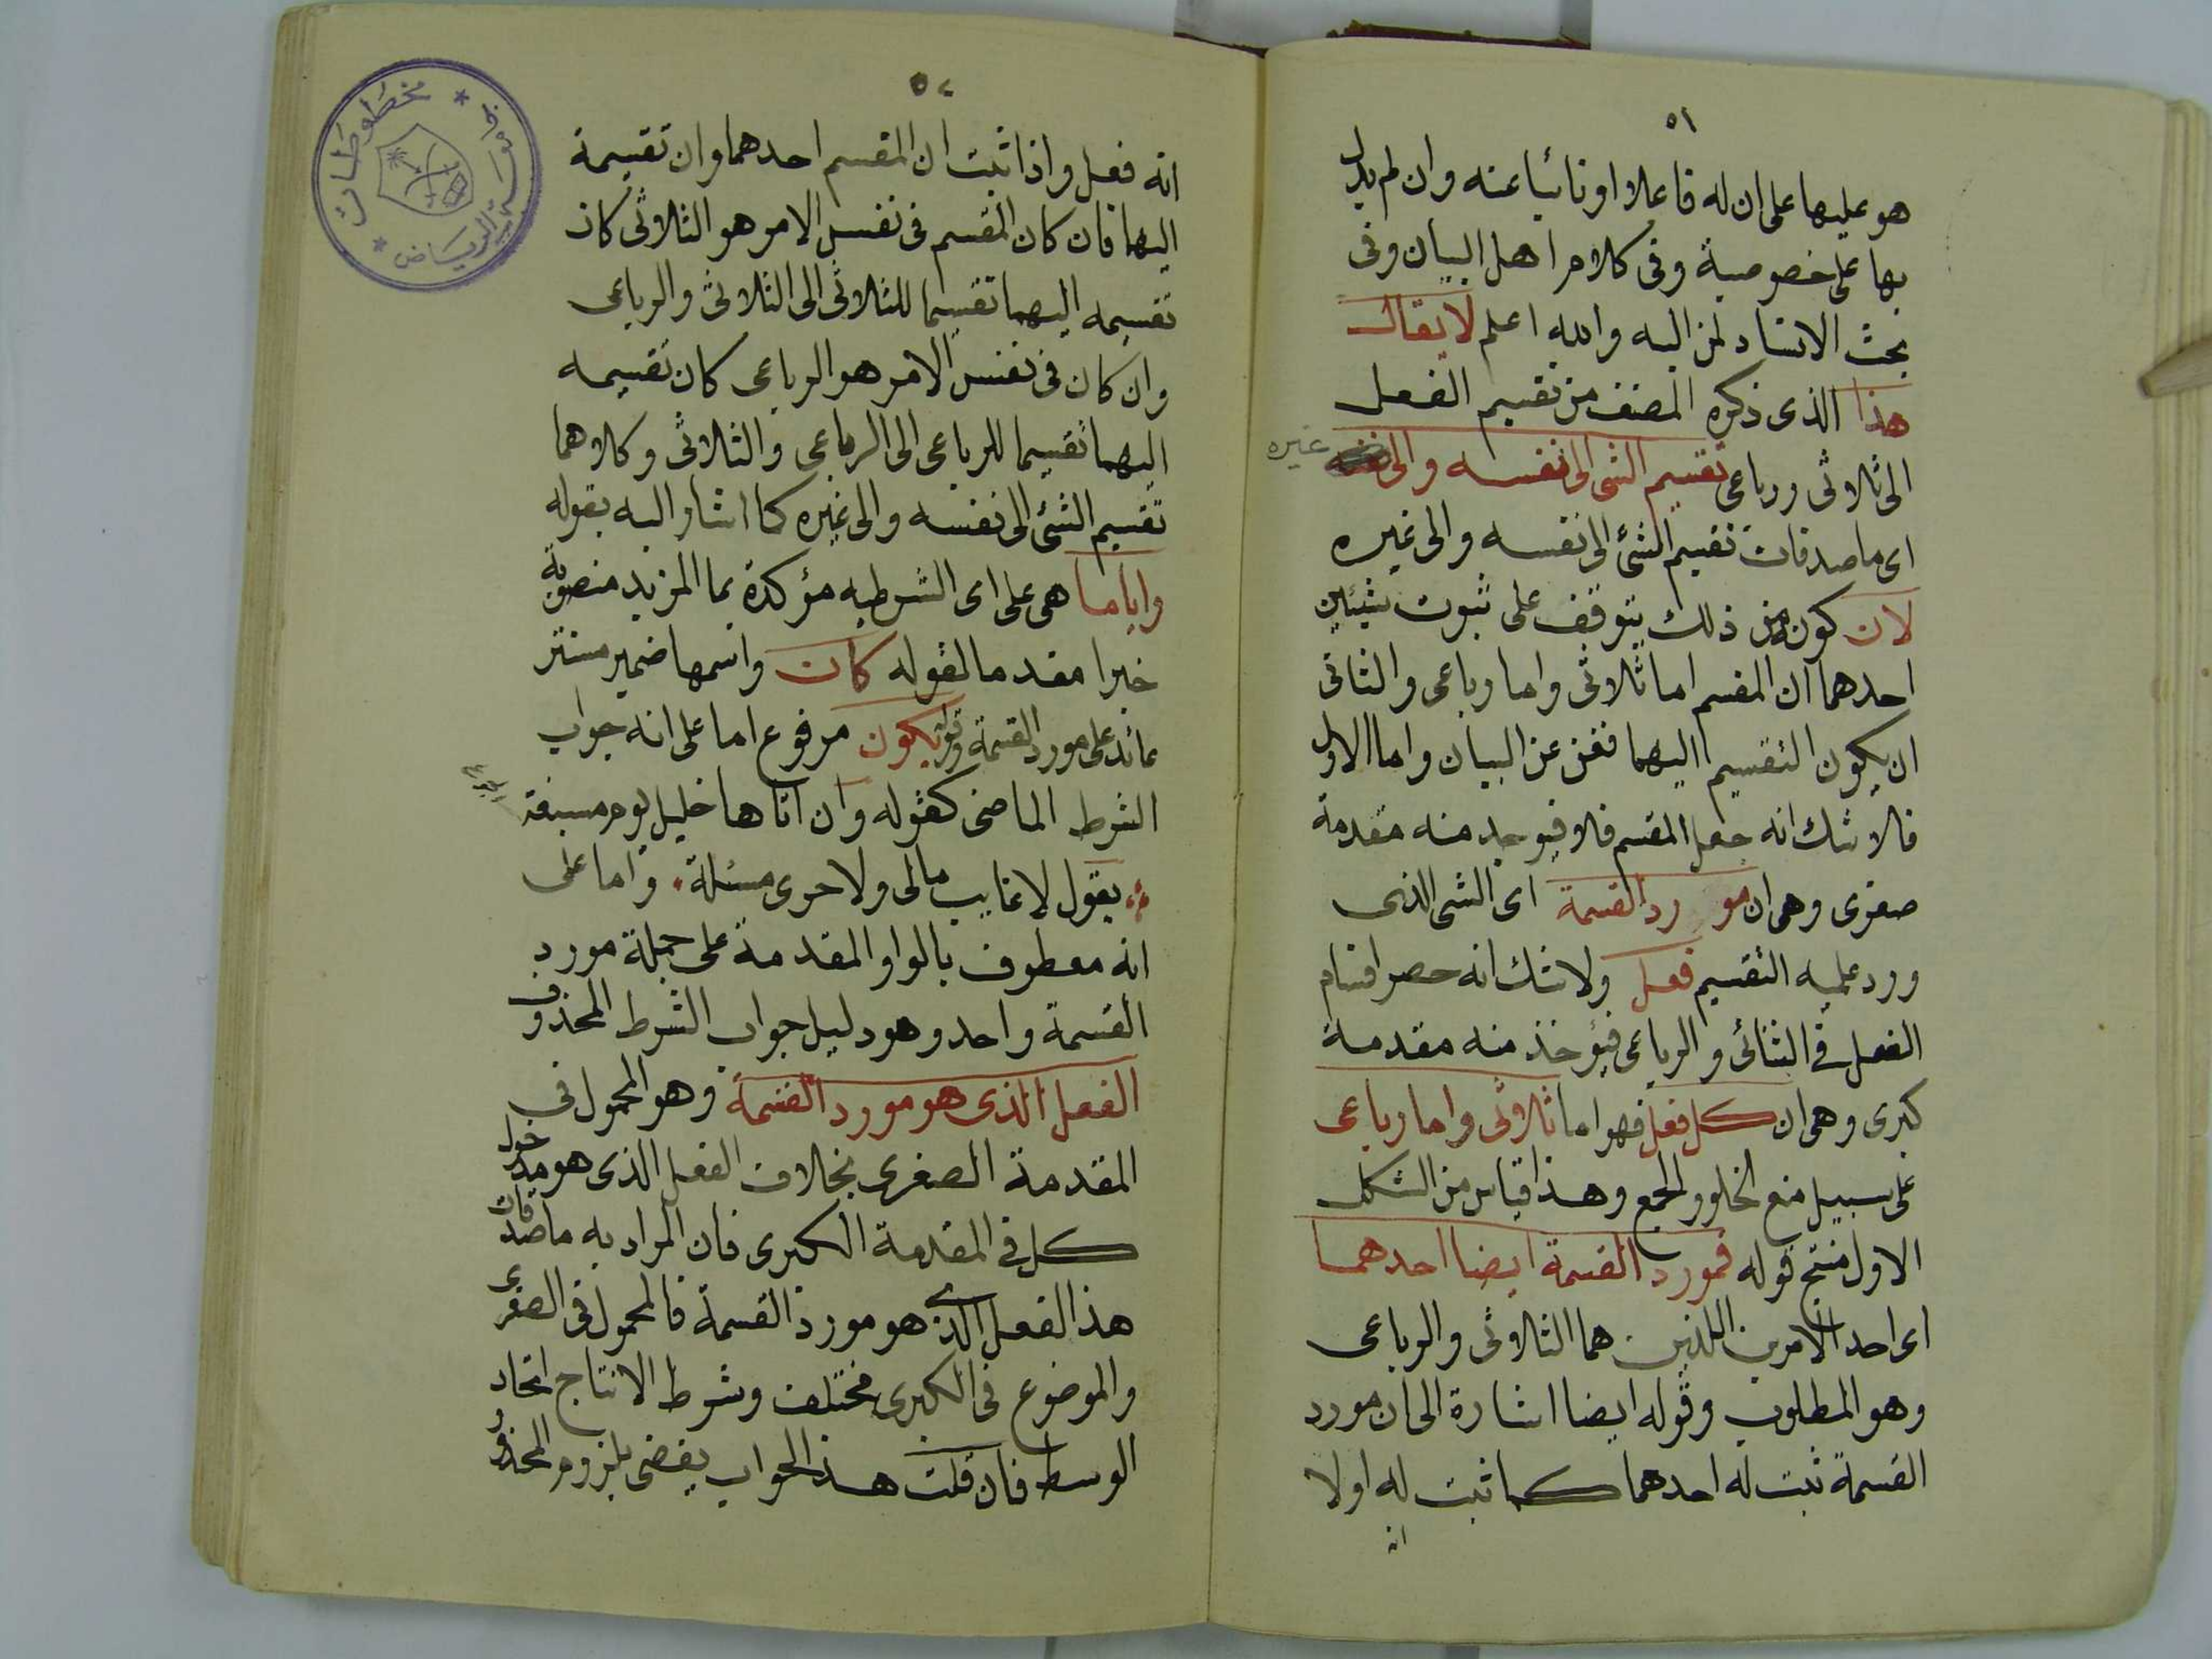 ٥١
هو عليها على ان له فاعلا او نائبا عنه وان لم يدل
بها على خصوصية وفى كلام اهل البيان وفى
بحث الاسناد لمز اليه والله اعلم لا يقال
هذا الذى ذكره المصنف من تقسيم الفعل
الى ثلاثى ورباعى تقسيم الشى الى نفسه والى غيره
اى ماصدقات تقسيم الشئ الى نفسه والى غيره
لان كون من ذلك يتوقف على ثبوت شيئين
احدهما ان المقسم اما ثلاثى واما رباعى والثانى
ان يكون التقسيم اليهما فغنى عن البيان واما الاول
فلا شك انه جعل المقسم فلا فيوجد منه مقدمة
صغرى وهى ان مورد القسمة اى الشى الذى
ورد عليه التقسيم فعل ولا شك انه حصر اقسام
الفعل فى الثنائى والرباعى فيؤخذ منه مقدمة
كبرى وهى ان كل فعل فهو اما ثلاثى واما رباعى
على سبيل منع الخلو والجمع وهذا قياس من الشكل
الاول منتج قوله فمورد القسمة ايضا احدهما
اى احد الامرين اللذين هما الثلاثى والرباعى
وهو المطلوب وقوله ايضا اشارة الى ان مورد
القسمة ثبت له احدهما كما ثبت له اولا
انه
٥٢
انه فعل واذا ثبت ان المقسم احدهما وان تقسيمة
اليهما فان كان المقسم فى نفس الامر هو الثلاثى كان
تقسيمه اليهما تقسيما للثلاثى الى الثلاثى والرباعى
وان كان فى نفس الامر هو الرباعى كان تقسيمه
اليهما تقسيما للرباعى الى الرباعى والثلاثى وكلاهما
تقسيم الشئ الى نفسه والى غيره كما اشار اليه بقوله
واياما هى على اى الشرطيه مؤكدة بما المزيد منصوبة
خبرا مقدما لقوله كان واسمها ضمير مستتر
عائد على مورد القسمة وقوله يكون مرفوع اما على انه جواب
الشرط الماضى كقوله وان اتاها خليل يوم مسبغة
يقول لا غايب مالى ولا حرى مسئلة واما على
انه معطوف بالواو المقدمة على جملة مورد
القسمة واحد وهو دليل جواب الشرط المحذوف
الفعل الذى هو مورد القسمة وهو المحمول فى
المقدمة الصغرى بخلاف الفعل الذى هو مدخول
كل فى المقدمة الكبرى فان المراد به ماصدقات
هذ الفعل الذى هو مورد القسمة فالمحمول فى الصغرى
والموضوع فى الكبرى مختلف وشرط الانتاج اتحاد
الوسط فان قلت هذ الجواب يفضى بلزوم المحذو
مخطوطات * جامعة الرياض *